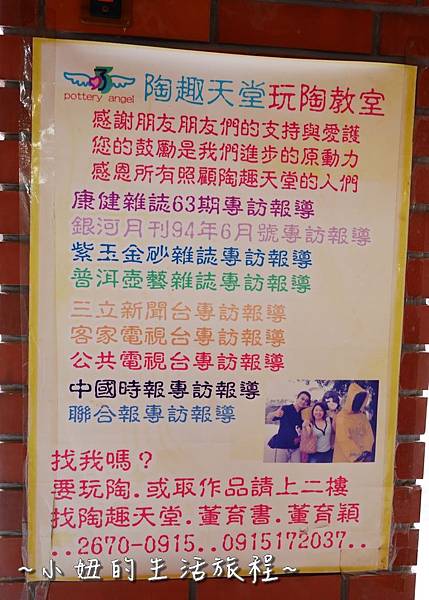 pottery angel
陶趣天堂玩陶教室
感謝朋友朋友們的支持與愛護
您的鼓勵是我們進步的原動力
感恩所有照顧陶趣天堂的人們
康健雜誌63期專訪報導
銀河月刊94年6月號專訪報導
紫玉金砂雜誌專訪報導
普洱壺藝雜誌專訪報導
三立新聞台專訪報導
客家電視台專訪報導
公共電視台專訪報導
中國時報專訪報導
聯合報專訪報導
找我嗎？
要玩陶.或取作品請上二樓
找陶趣天堂.董育書.董育穎
..2670-0915..0915172037..
~小妞的生活旅程~